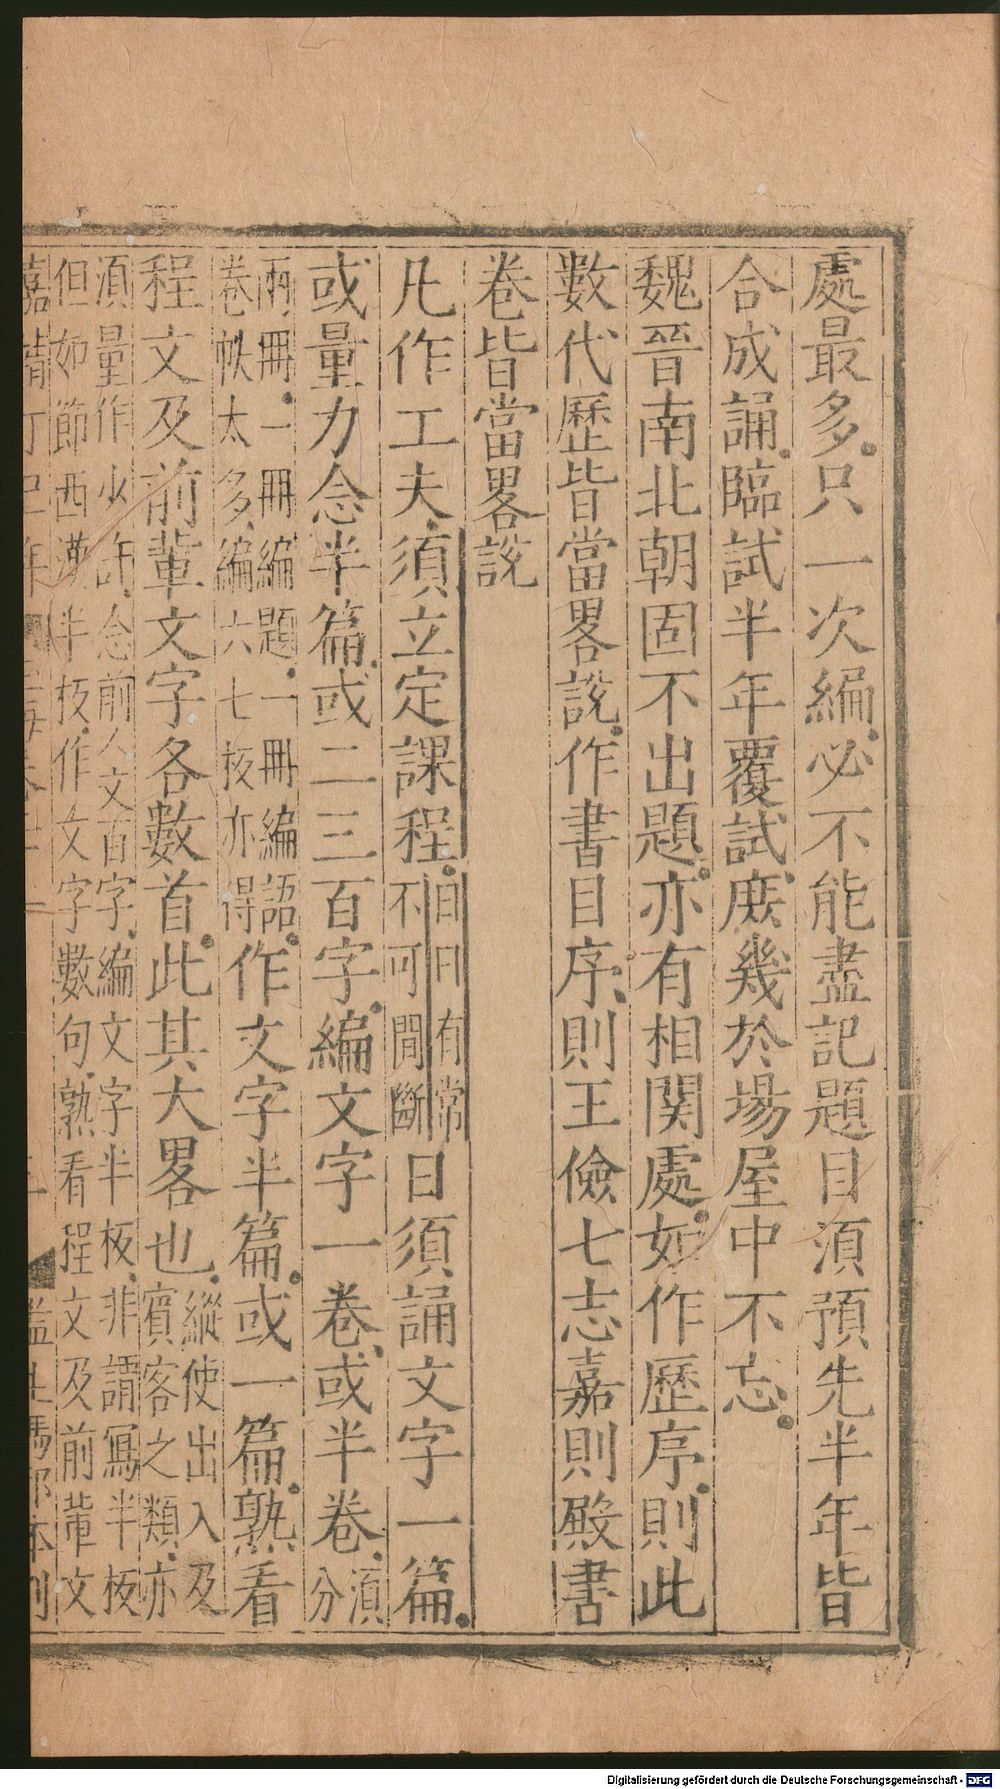 處最多只一次編必不能盡記題目須預先半年皆
合成誦臨試半年覆試庻幾於塲屋中不忘
魏晉南北朝固不出題亦有相関處如作歷序則此
數代歷皆當畧説作書目序則王儉七志嘉則殿書
卷皆當畧説
凡作工夫須立定課程日日有常不可間斷日須誦文字一篇
或量力念半篇或二三百字編文字一卷或半卷須分
兩冊一冊編題一冊編語卷帙太多編六七板亦得作文字半篇或一篇熟看
程文及前輩文字各數首此其大畧也縱使出入及賓客之類亦
須量作少許念前人文百字編文字半板非謂寫半板
但如節西漢半板作文字數句熟看程文及前輩文
Digitalisierung gefördert durch die Deutsche Forschungsgemeinschaft - DFG